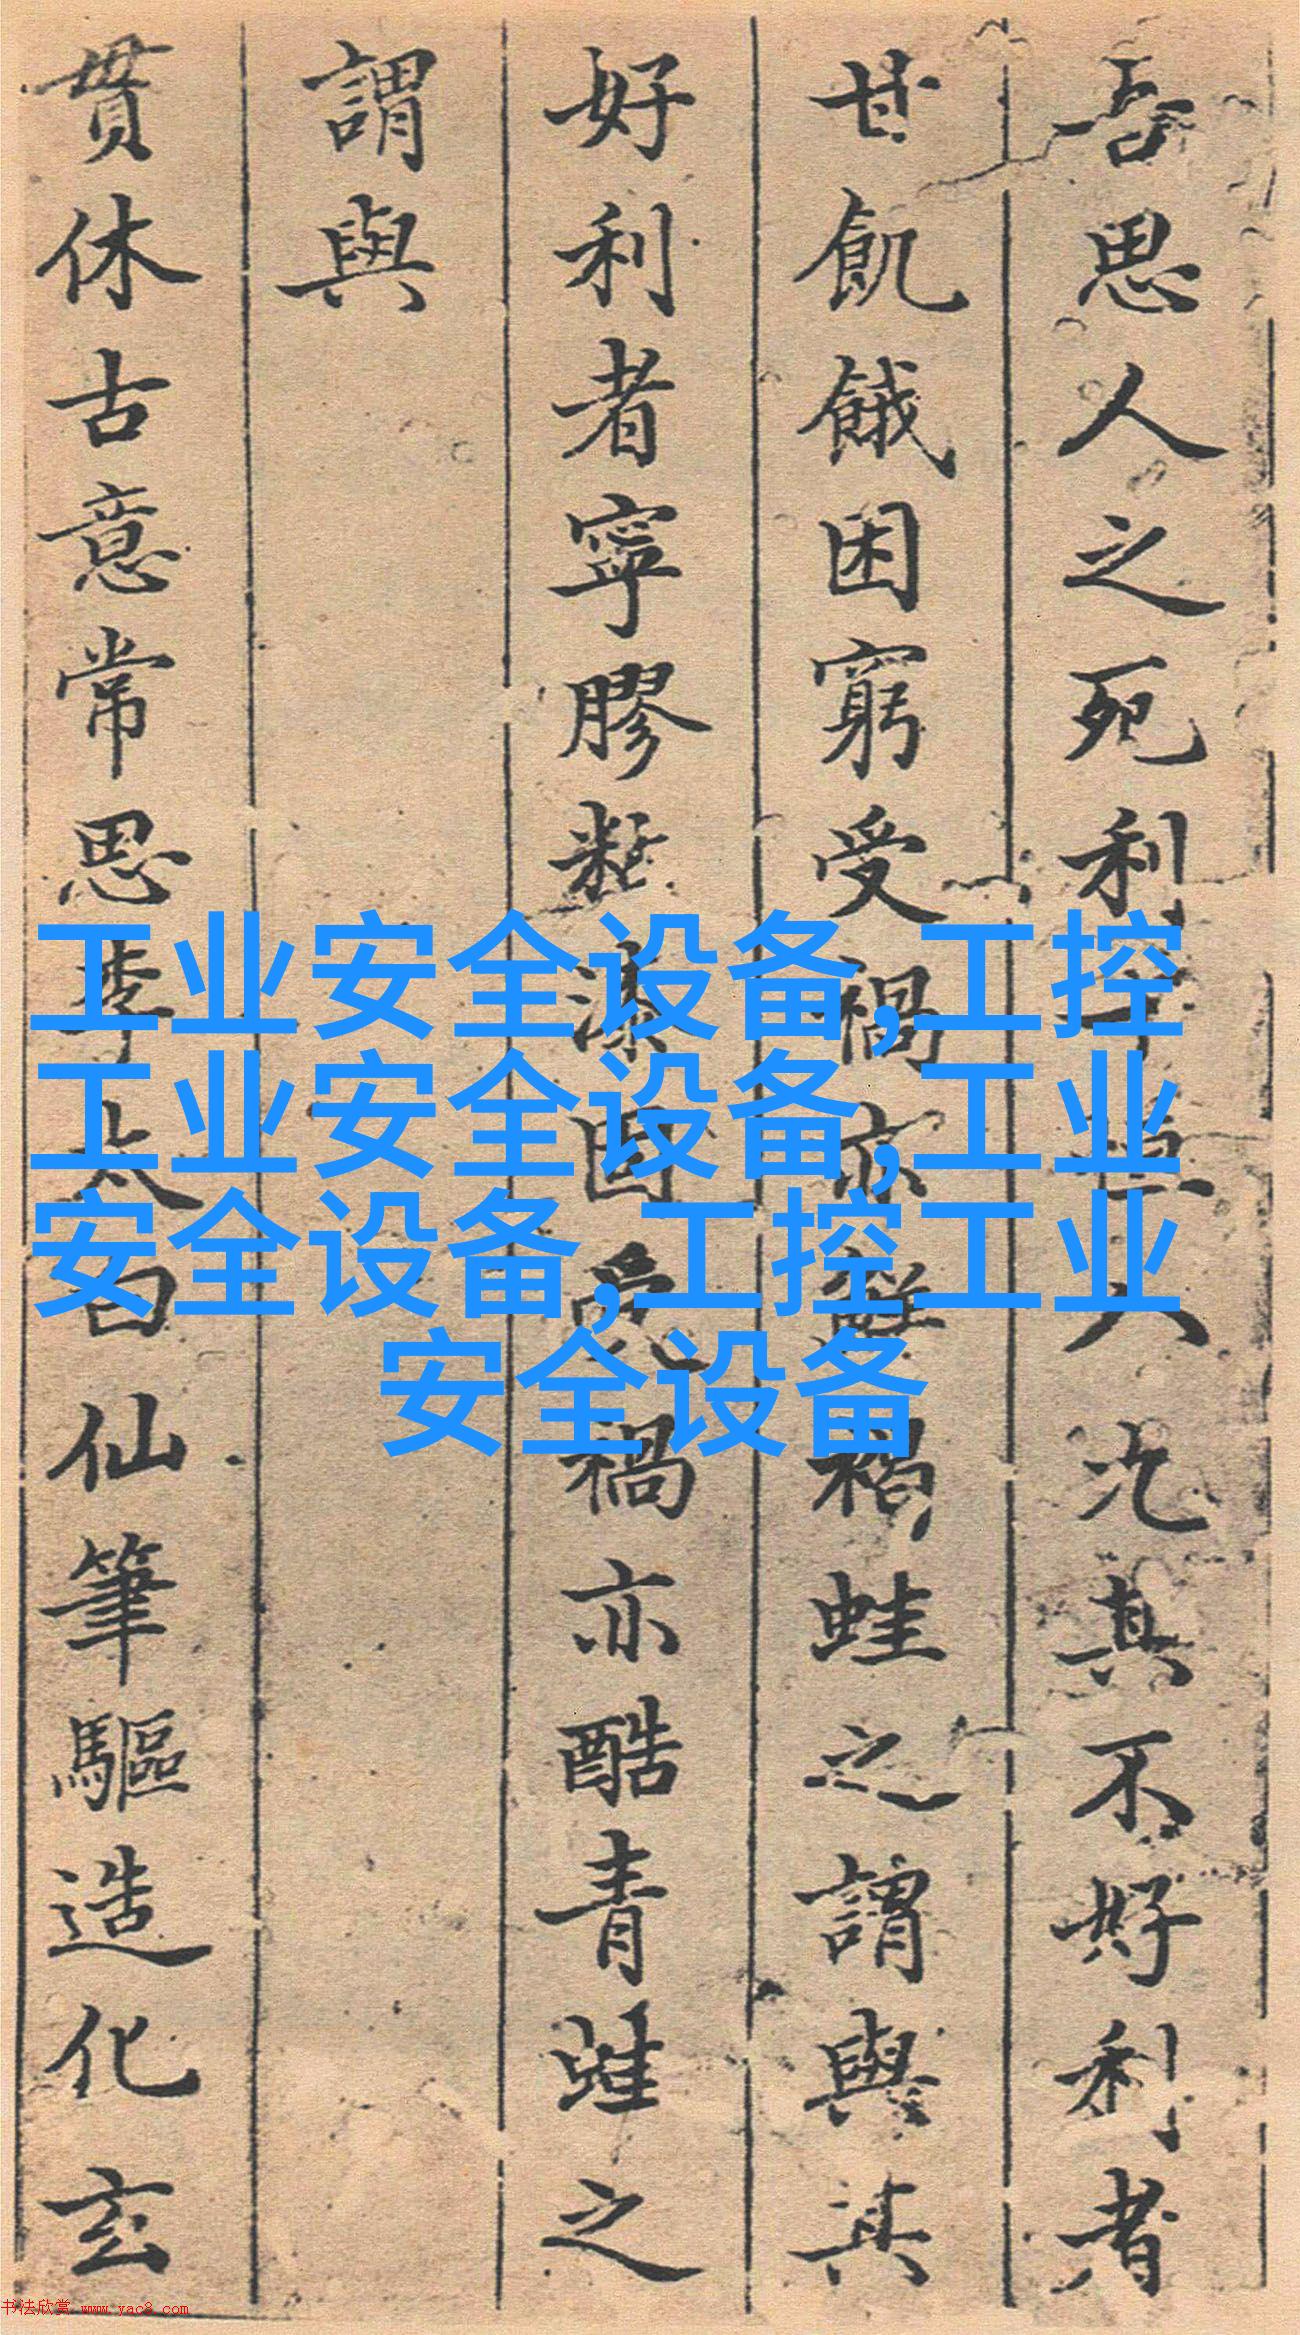 吾思人之死利
其不好利者
甘飢餓困窮受禍亦
禍蛙之謂與其
好利者寧膠
漆
禍亦酷青蛙之
謂與
貫休古意常思李太白仙筆驅造化玄
工业安全设备,工控
工业安全设备,工业
安全设备,工控工业
安全设备
书法欣赏 www.yac8.com